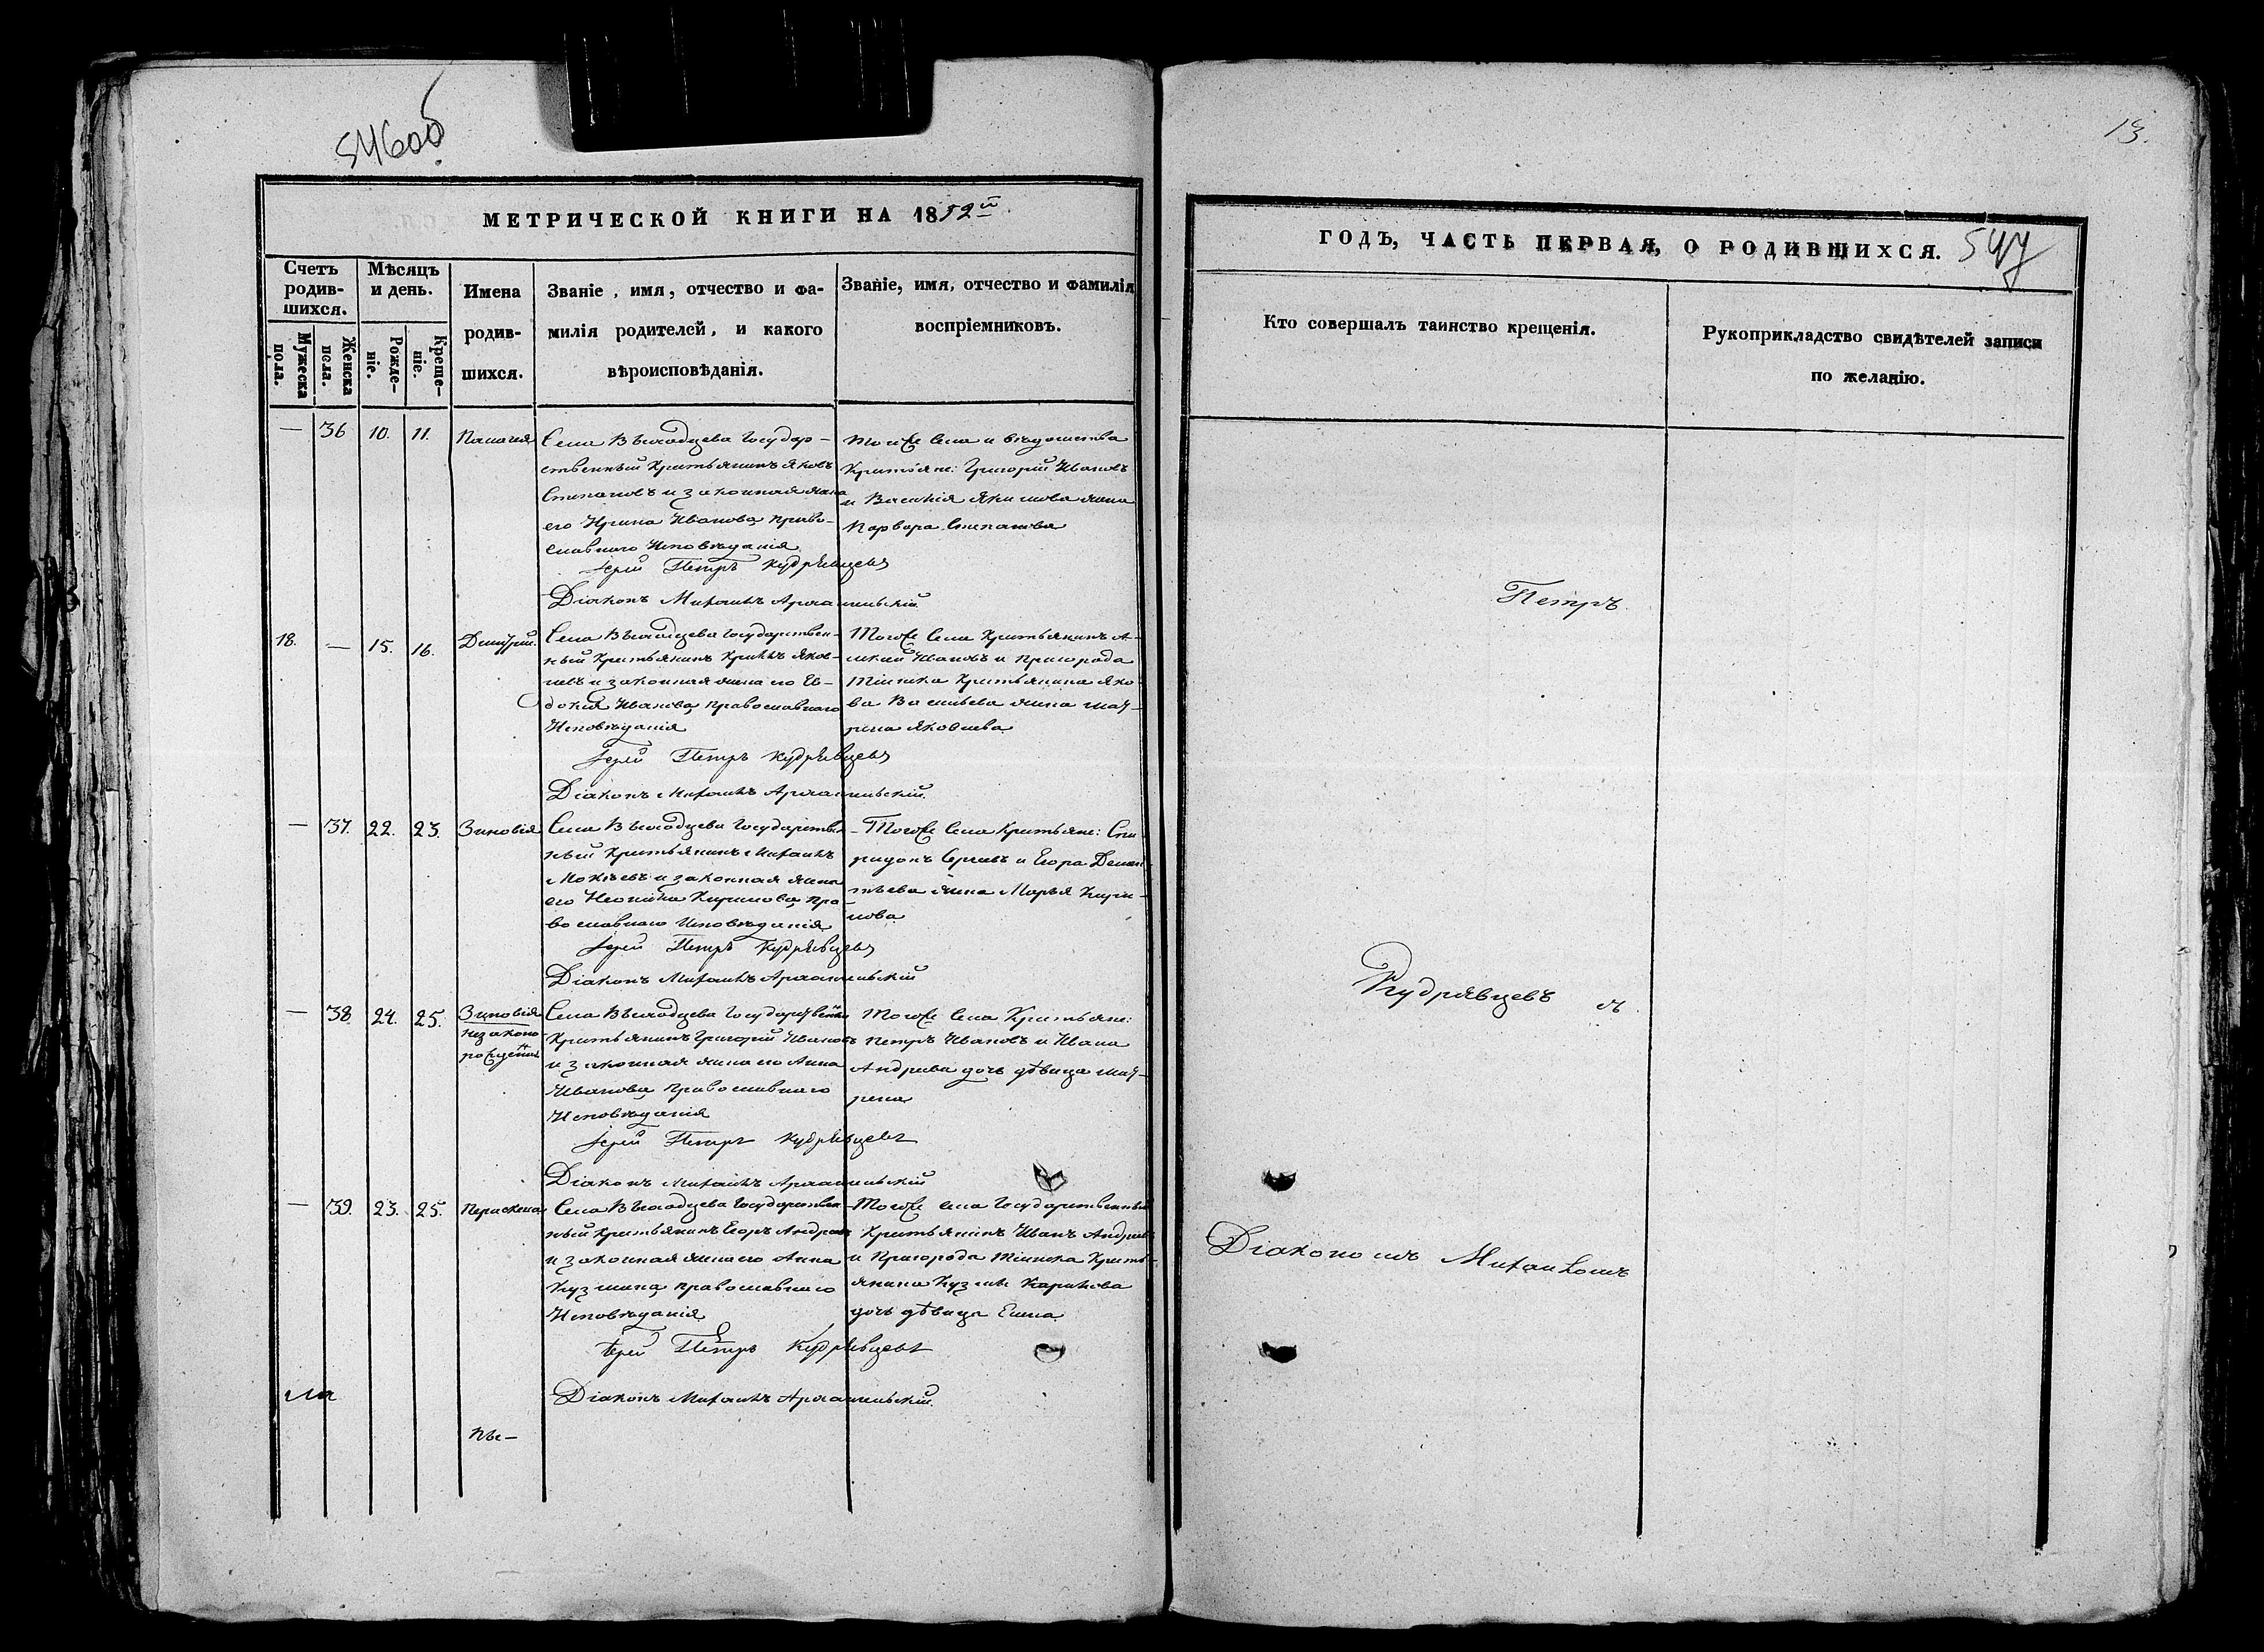 546об
МЕТРИЧЕСКОЙ КНИГИ НА 1852й
Счетъ родив-шихся.
Мужеска пола.
Женска пола.
Мѣсяцъ и день.
Рожде-ніе.
Креще-ніе.
Имена родив-шихся.
Званіе, имя, отчество и фа-
милія родителей, и какого
вѣроисповѣданія.
Званіе, имя, отчество и фамилія
воспріемниковъ.
— 36 10. 11. Пелагия
Села Выходцева Государ-
ственный Крестьянинъ Яковъ
Степановъ и законная жена
его Ирина Иванова, Право-
славнаго Исповѣданія
Іерей Петръ Кудрявцевъ
Діаконъ Михаилъ Архангельскій
того же Села и вѣдомства
Крестьяне: Григорій Ивановъ
и Василія Якимова жена
Варвара Степанова
18. — 15. 16. Димитрій.
Села Выходцева Государствен-
ный Крестьянинъ
и законная жена его Ев-
докия Иванова, Православнаго
Исповѣданія
Іерей Петръ Кудрявцевъ
Діаконъ Михаилъ Архангельскій.
Того же Села Крестьянинъ
Ивановъ и Пригорода
Тіинска Крестьянина Яко-
ва Васильева жена Мат-
рена Яковлева
— 37. 22. 23. Зиновія
Села Выходцева Государствен-
ный Крестьянинъ Михаилъ
и законная жена
его Кирилова, Пра-
вославнаго Исповѣданія
Іерей Петръ Кудрявцевъ
Діаконъ Михаилъ Архангельскій
Того же Села Крестьяне: Спи-
ридонъ Сергѣевъ и Егора Демен-
тьева жена Марья Кири-
лова
— 38. 24. 25. Зиновія
незаконо-
рожденн
Села Выходцева Государственн
Крестьянинъ Григорій Ивановъ
и законная жена его Анна
Иванова, Православнаго
Исповѣданія
Іерей Петръ Кудрявцевъ
Діаконъ Михаилъ Архангельскій
Того же Села Крестьяне:
Петръ Ивановъ и Ивана
Андреева дочь дѣвица Мат-
рена
— 39. 23. 25. Параскева
Села Выходцева Государствен-
ный Крестьянинъ Егоръ Андреевъ
и законная жена его Анна
Кузмина, Православнаго
Исповѣданія
Іерей Петръ Кудрявцевъ
Діаконъ Михаилъ Архангельскій.
Того же села Государственный
Крестьянинъ Иванъ Андреевъ
и Пригорода Тіинска Кресть-
янина Кузмы
дочь дѣвица Елена
13.
ГОДЪ, ЧАСТЬ ПЕРВАЯ, О РОДИВШИХСЯ.
547
Кто совершалъ таинство крещенія.
Рукоприкладство свидѣтелей записи
по желанію.
Петръ
Кудрявцевъ съ
Діакономъ Михаиломъ